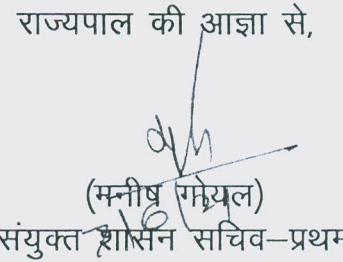 राज्यपाल की आज्ञा से,
(मनीष गोयल)
संयुक्त शासन सचिव–प्रथम